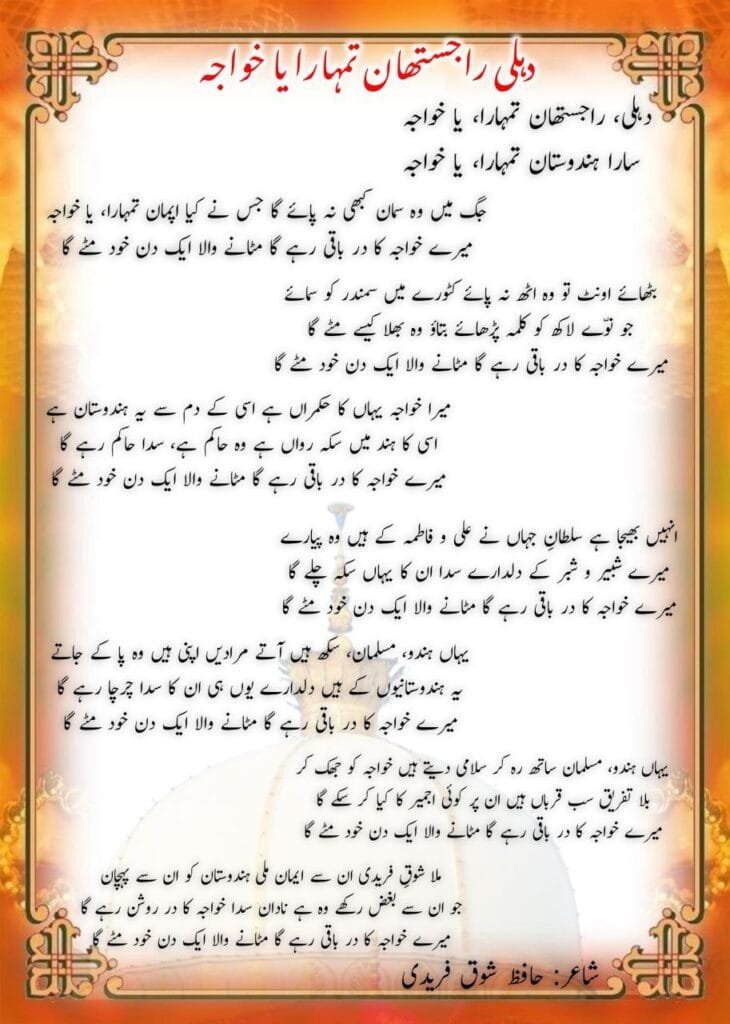 دہلی راجستھان تمہارا یا خواجہ
دہلی، راجستھان تمہارا، یا خواجہ
سارا ہندوستان تمہارا، یا خواجہ
جگ میں وہ سمان کبھی نہ پائے گا جس نے کیا اپمان تمہارا، یا خواجہ
میرے خواجہ کا در باقی رہے گا مٹانے والا ایک دن خود مٹے گا
بٹھائے اونٹ تو وہ اٹھ نہ پائے کٹورے میں سمندر کو سمائے
جو نوّے لاکھ کو کلمہ پڑھائے بتاؤ وہ بھلا کیسے مٹے گا
میرے خواجہ کا در باقی رہے گا مٹانے والا ایک دن خود مٹے گا
میرا خواجہ یہاں کا حکمراں ہے اسی کے دم سے یہ ہندوستان ہے
اسی کا ہند میں سکہ رواں ہے وہ حاکم ہے، سدا حاکم رہے گا
میرے خواجہ کا در باقی رہے گا مٹانے والا ایک دن خود مٹے گا
انہیں بھیجا ہے سلطانِ جہاں نے علی و فاطمہ کے ہیں وہ پیارے
میرے شبیر و شبر کے دلدارے سدا ان کا یہاں سکہ چلے گا
میرے خواجہ کا در باقی رہے گا مٹانے والا ایک دن خود مٹے گا
یہاں ہندو، مسلمان، سکھ ہیں آتے مرادیں اپنی ہیں وہ پا کے جاتے
یہ ہندوستانیوں کے ہیں دلدارے یوں ہی ان کا سدا چرچا رہے گا
میرے خواجہ کا در باقی رہے گا مٹانے والا ایک دن خود مٹے گا
یہاں ہندو، مسلمان ساتھ رہ کر سلامی دیتے ہیں خواجہ کو جھک کر
بلا تفریق سب قرباں ہیں ان پر کوئی اجمیر کا کیا کر سکے گا
میرے خواجہ کا در باقی رہے گا مٹانے والا ایک دن خود مٹے گا
ملا شوقِ فریدی ان سے ایمان ملی ہندوستان کو ان سے پہچان
جو ان سے بغض رکھے وہ ہے نادان سدا خواجہ کا در روشن رہے گا
میرے خواجہ کا در باقی رہے گا مٹانے والا ایک دن خود مٹے گا
شاعر: حافظ شوق فریدی